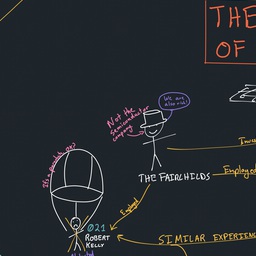 THE
OF
We are
also rich!
Not the
semiconductor
company
THE FAIRCHILDS
Employed
It's a parachute, ok?
Employed
021
ROBERT
KELLY
SIMILAR EXPERIENC